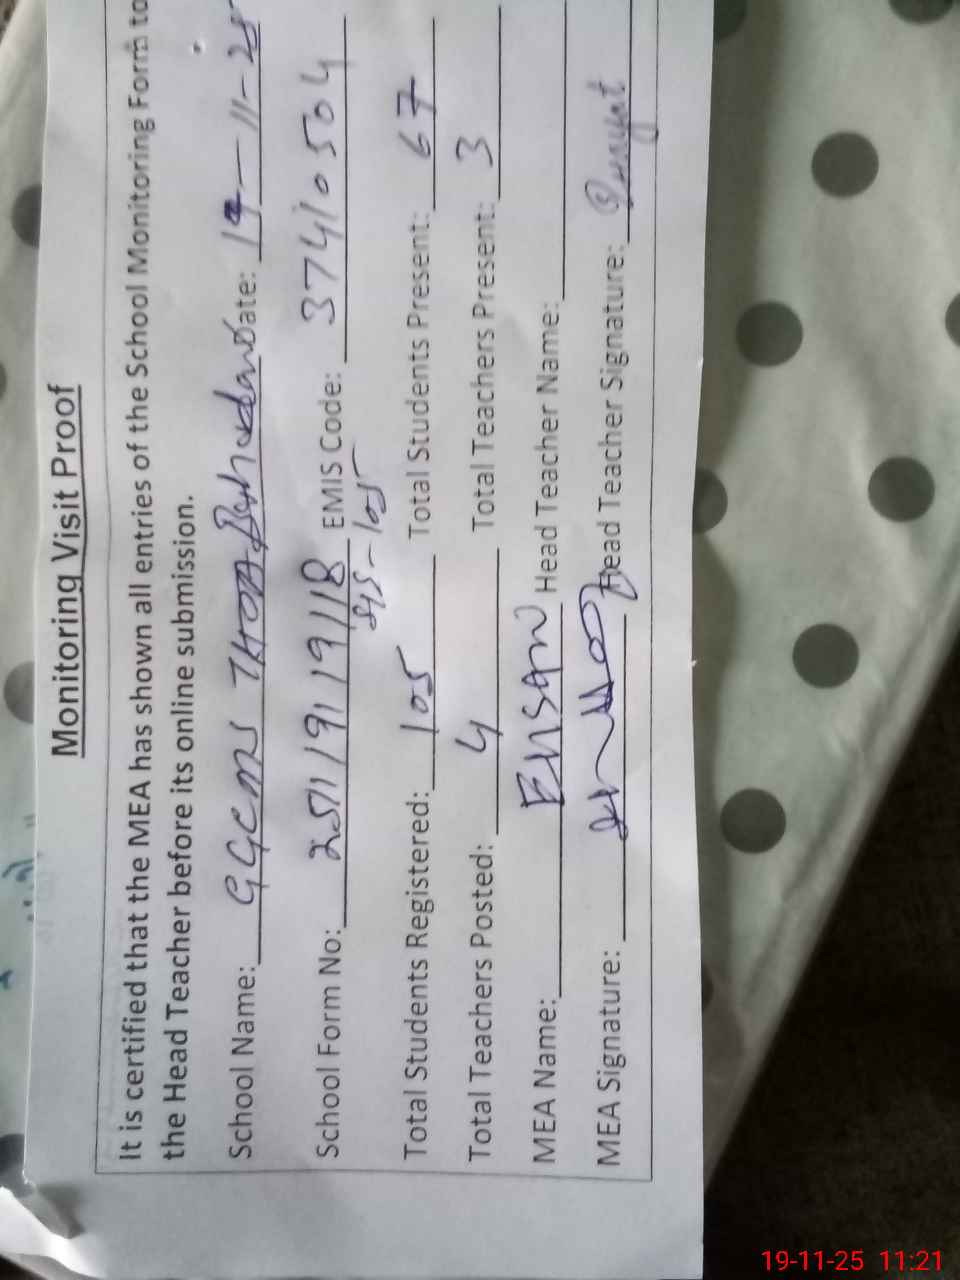 Monitoring Visit Proof
It is certified that the MEA has shown all entries of the School Monitoring Form to
the Head Teacher before its online submission.
School Name: GGCMS THOA Date: 19-11-25
School Form No: 251119119118 EMIS Code: 37410504
945-105
Total Students Registered: 105 Total Students Present: 67
Total Teachers Posted: 4 Total Teachers Present: 3
MEA Name: EHSAN Head Teacher Name:
MEA Signature: Head Teacher Signature:
19-11-25 11:21